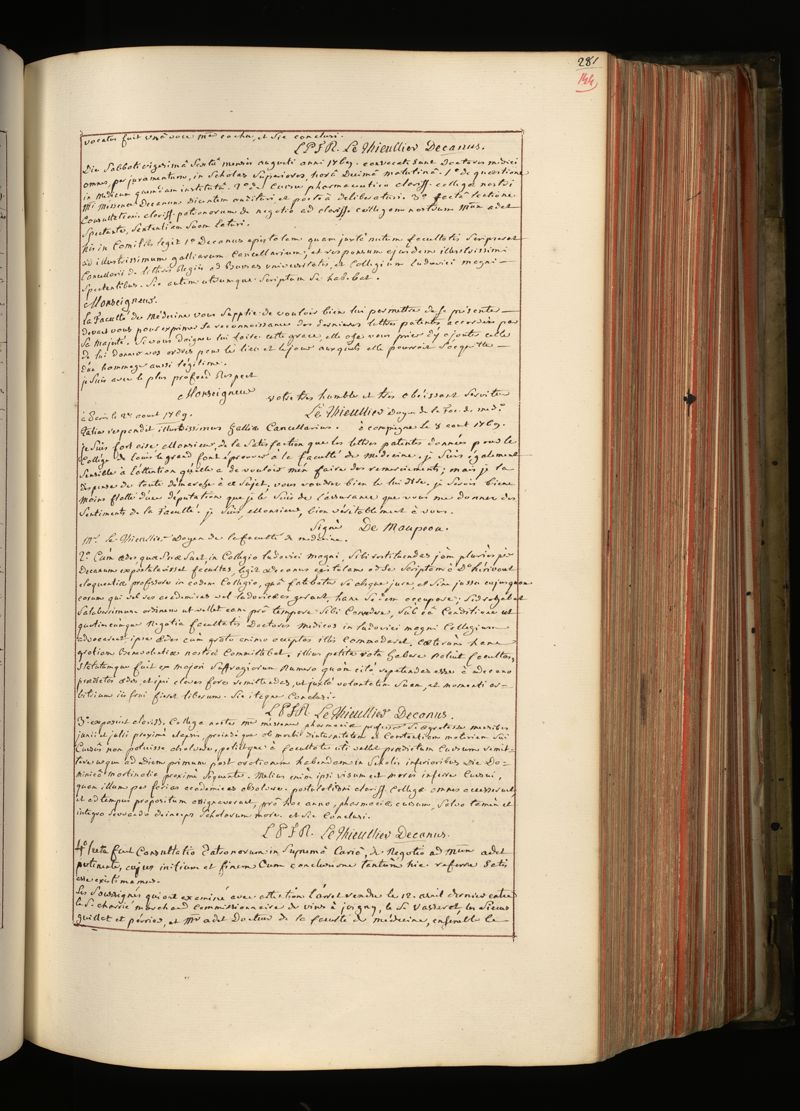 281
144
vocatus fuit unâ voce mer cochu, et sic conclusi.
L P J R. Le Thieullier Decanus.
Die Sabbati vigesimâ Sextâ mensis augusti anni 1769. convocati sunt Doctores medici
omnes, per juramentum, in Scholas Superiores, horâ Decimâ matutinâ. 1° de quaestione
in medicum quemdam institutâ. 2° de Cursu pharmaceutico clariss. collegae nostri
Mri Messence Decanum Dicentem audituri et posteà deliberaturi. 3° factâ lectione
Consultationis clariss. patronorum de negotio ad clariss. collegam nostrum mum adet
Spectante, Sententiam Suam laturi.
his in Comitiis legit 1° Decanus epistolam quam juxtà nutum facultatis Scripserat
ad illustrissimum galliarum Cancellarium, et responsum ejusdem illustrissimi
Cancellarii de litteris Regiis ad Bursas universitatis, et Collegium Ludovici magni
Spectantibus. Sic autem utrumque Scriptum se habebat.
Monseigneur.
la faculté de Médecine vous Supplie de vouloir bien lui permettre de se présenter
devant vous pour exprimer sa reconnaissance des dernieres lettres patentes accordées par
Sa Majesté. Si vous daignez lui faire cette grace, elle ose vous prier d'y ajouter celle
de lui donner vos ordres pour le lieu et le jour auxquels elle pourroit S'acquitter
d'un hommage aussi légitime.
je suis avec le plus profond Respect
Monseigneur votre très humble et très obéissant Serviteur
à Paris le 2. aout 1769. Le Thieullier Doyen de la fac. de med.e
Taliter respondit illustrissimus Galliae Cancellarius. à compiegne le 8 aout 1769.
je Suis fort aise, Monsieur, de la Satisfaction que les lettres patentes données pour le
College de Louis le grand font éprouver à la faculté de Médecine. je Suis également
Sensible à l'attention qu'elle a de vouloir m'en faire des remerciments; mais je la
dispense de toute démarche à ce Sujet, vous voudrez bien le lui dire. je Serois bien
moins flatté d'une députation que je le Suis de l'assurance que vous me donnez des
Sentiments de la Faculté. je Suis Monsieur, bien véritablement à vous.
Signé De Maupeou.
Mr. Le Thieullier Doyen de la faculté de médecine.
2° Cùm aedes quae Suae Sunt, in Collegio Ludovici magni, Sibi restituendas jàm pluriès per
Decanum expostulavisset facultas, legit Decanus epistolam ad Se Scriptam à Do hérivaut
eloquentiae professore in eodem Collegio, quâ fatebatur Se absque jure, et sine jussu cujusquam
eorum qui vel res academicas vel ludovicaeas gerunt, hanc Sedem occupare; Sed rogabat
Saluberrimum ordinem ut vellet eam prò tempore Sibi Concedere, Sub eâ Conditione ut
quotiescumque Negotia facultatis Doctores medicos in Ludovici magni Collegium
advocarent ipse aedes cùm grato animo acceptas illis Commodaret. caeterùm hanc
gratiam benevolentiae nostrae Committebat. illius petita rata habere Noluit facultas,
Statutumque fuit ex majori Suffragiorum Numero quàm citò repetendas esse à decano
praedictas aedes et ipsi claves fores remittendas, ut juxtà voluntatem Suam et momenti ar-
bitrium iis frui fieret liberum. Sic itaque Conclusi.
L P J R. Le Thieullier Decanus.
3° exposuit clariss. Collega noster mer messence pharmaciae professor Se aegrotasse mensibus
junii et julii proximè elapsis, proindè que ob morbi diuturnitatem Cursûs
Cursûs non potuisse absolvere, petiitque à facultate uti vellet praedictum Cursum remit-
tere usque ad diem primum post orationem habendam in Scholis inferioribus Die Do-
minicâ martinalia proximè Sequente. Meliùs enim ipsi visum est moras inferre Cursui,
quàm illum per ferias academicas absolvere. postulationi clariss. Collegae omnes assenserunt,
et ad tempus propositum assignaverunt, prò hoc anno, pharmaciae cursum, Salvo tamen et
integro Servando deinceps Scholarum more. et Sic Conclusi.
L P J R. Le Thieullier Decanus.
4° lecta fuit Consultatio Patronorum in Supremâ Curiâ, de Negotio ad mum adet
pertinente, cujus initium et finem Cum conclusione tantùm hìc referre Satis
esse existimamus.
Les Soussignés qui ont examiné avec attention l'arrêt rendu le 12. avril dernier entre
le Sr. charrié marchand Commissionnaire de vins à joigny, le Sr. Vasserot les Sieurs
guillet et périer, et Mr adet Docteur de la faculté de médecine, ensemble le